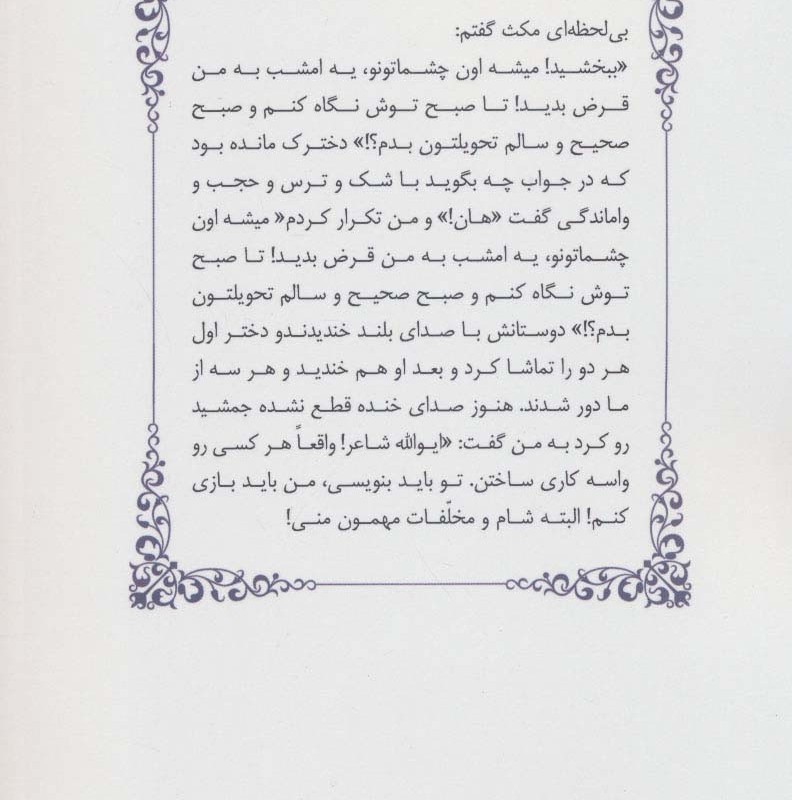 بی‌لحظه‌ای مکث گفتم:
«ببخشید! میشه اون چشماتونو، یه امشب به من
قرض بدید! تا صبح توش نگاه کنم و صبح
صحیح و سالم تحویلتون بدم؟!» دخترک مانده بود
که در جواب چه بگوید با شک و ترس و حجب و
واماندگی گفت «هان!» و من تکرار کردم« میشه اون
چشماتونو، یه امشب به من قرض بدید! تا صبح
توش نگاه کنم و صبح صحیح و سالم تحویلتون
بدم؟!» دوستانش با صدای بلند خندیدندو دختر اول
هر دو را تماشا کرد و بعد او هم خندید و هر سه از
ما دور شدند. هنوز صدای خنده قطع نشده جمشید
رو کرد به من گفت: «ایوالله شاعر! واقعاً هر کسی رو
واسه کاری ساختن. تو باید بنویسی، من باید بازی
کنم! البته شام و مخلّفات مهمون منی!